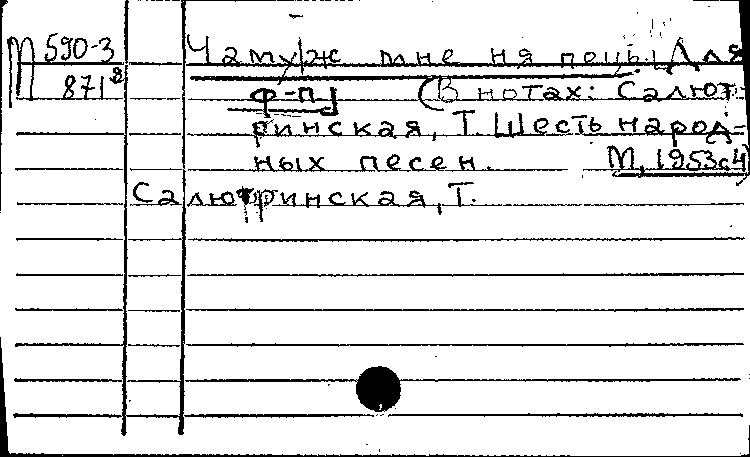 М 590-3 Чамуж мне ня пець. [Для
871² ф-п] (В нотах: Салют-
ринская, Т. Шесть народ-
ных песен. М, 1953, с4)
Салютринская, Т.